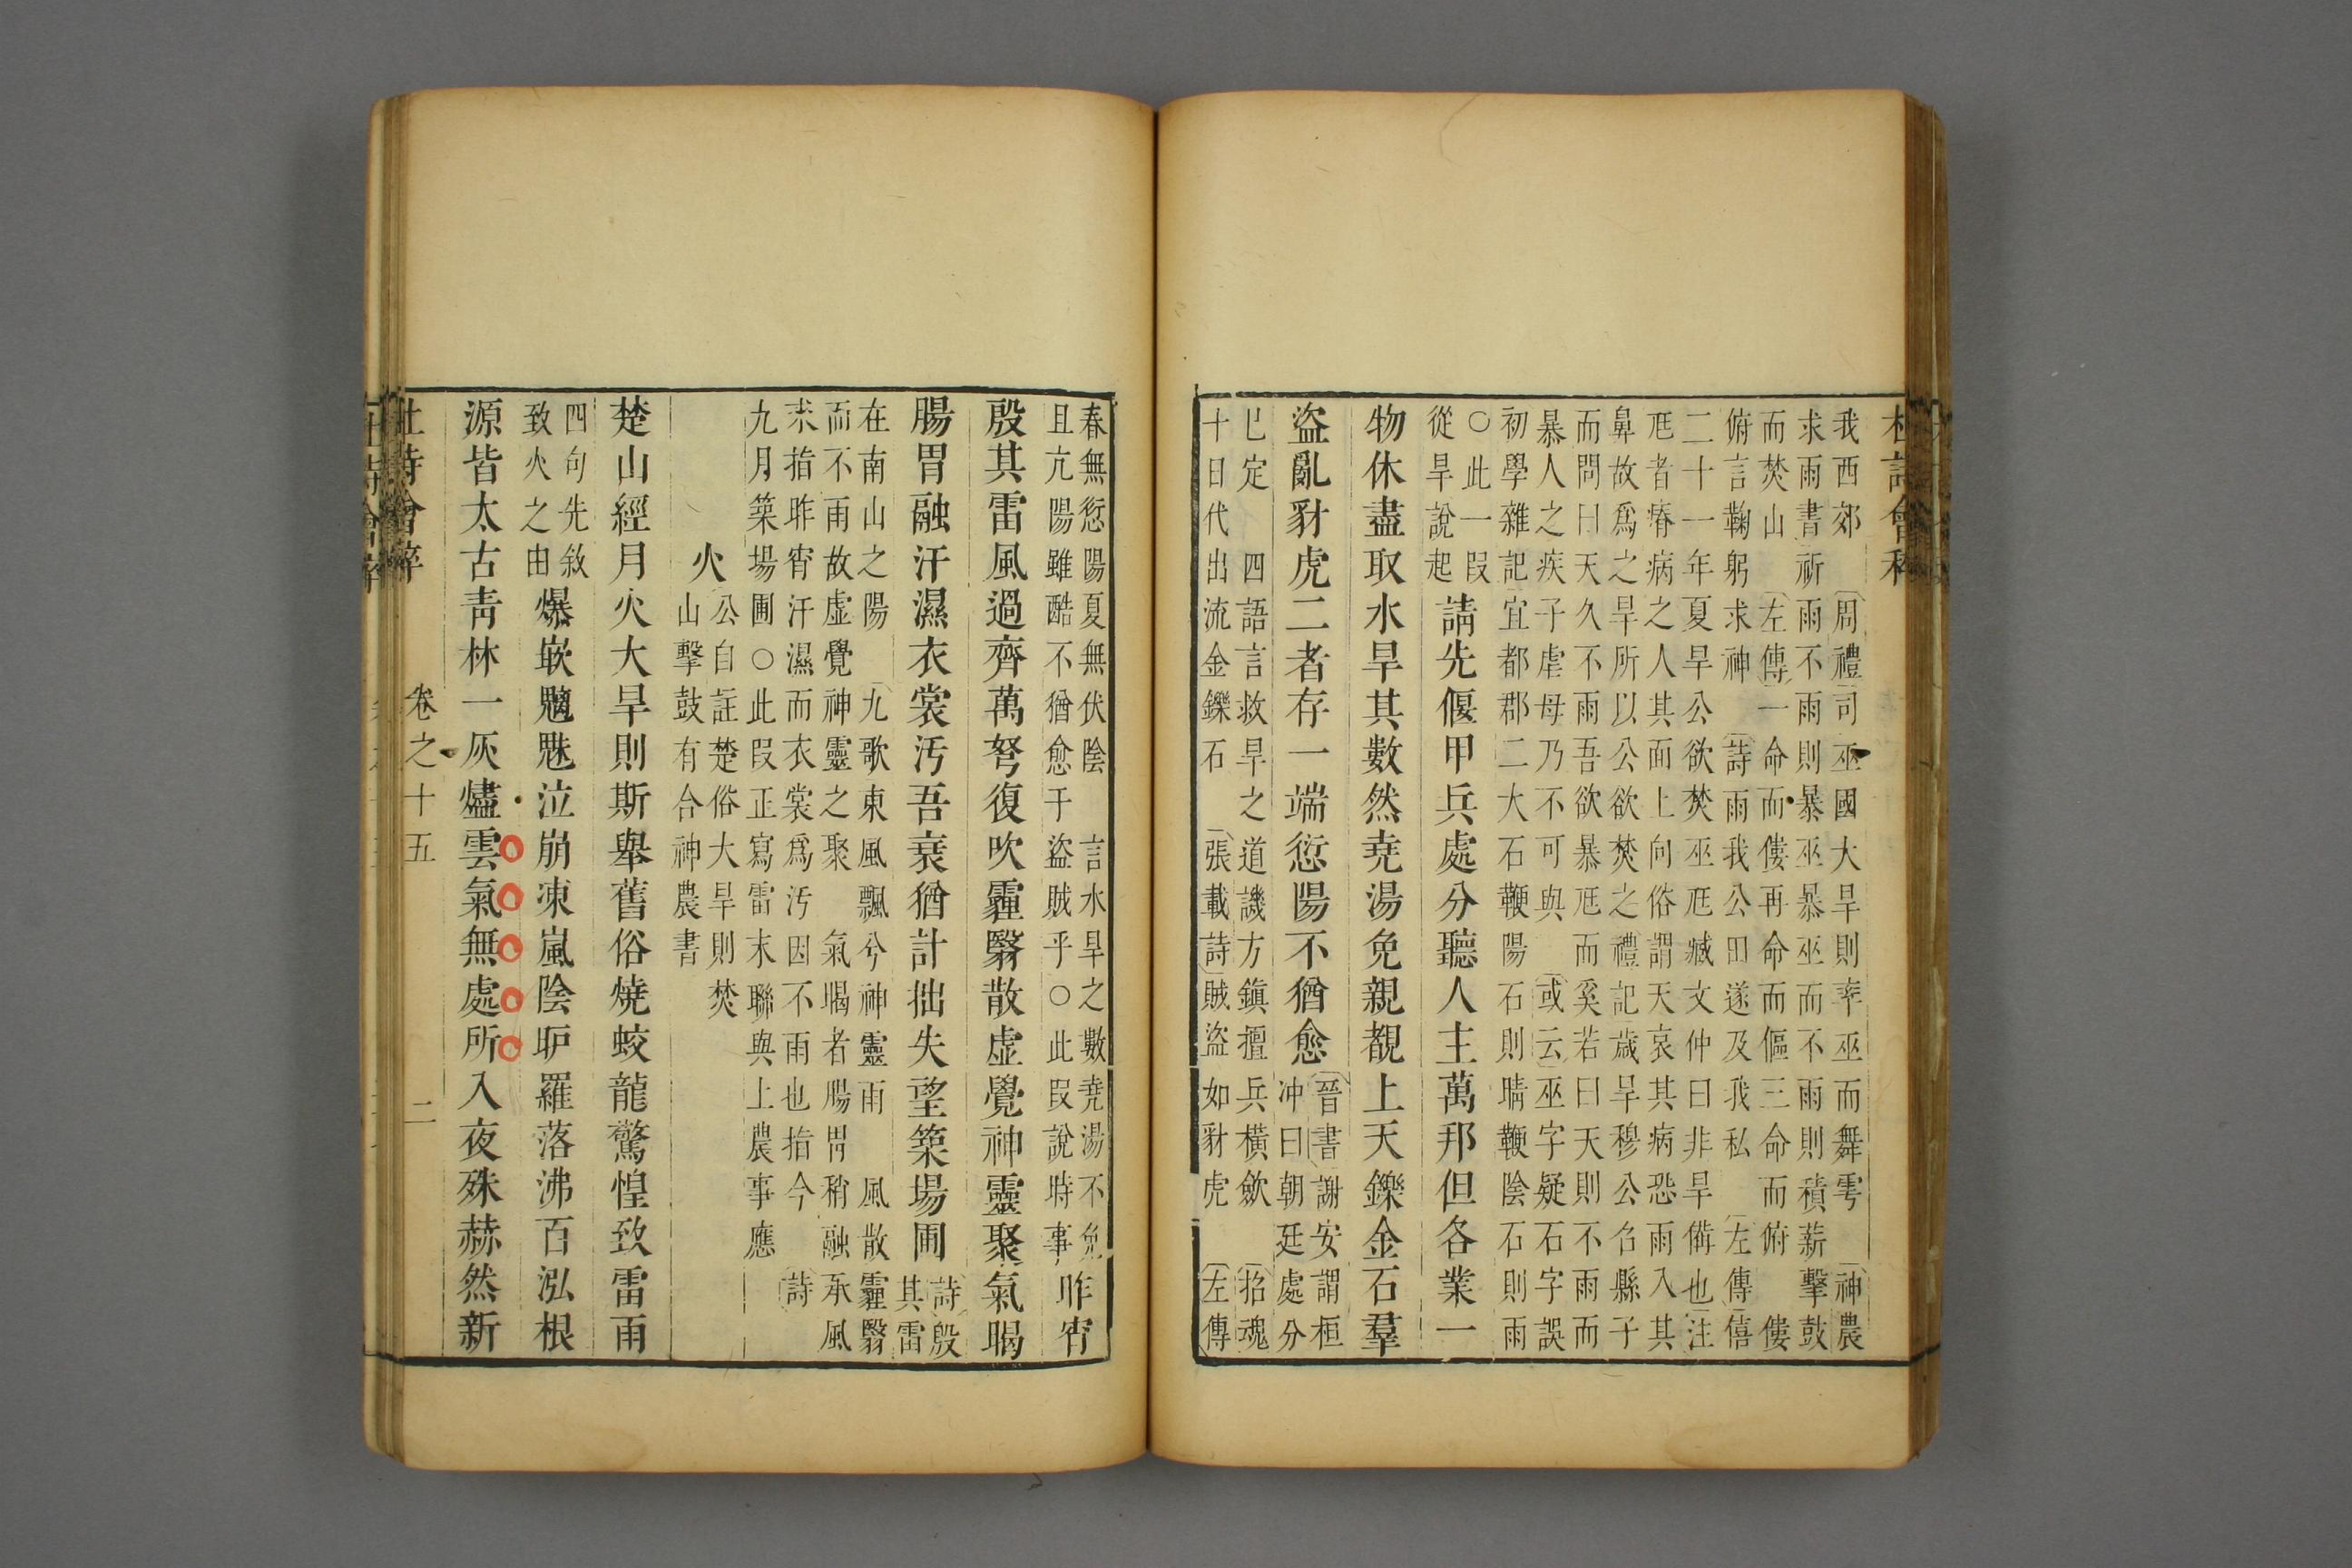 杜詩會稡
我西郊 周禮司巫國大旱則率巫而舞雩 神農
求雨書祈雨不雨則暴巫暴巫而不雨則積薪擊鼓
而焚山 左傳一命而僂再命而傴三命而俯 僂
俯言鞠躬求神 詩雨我公田遂及我私 左傳僖
二十一年夏旱公欲焚巫尫臧文仲曰非旱備也注
尫者瘠病之人其面上向俗謂天哀其病恐雨入其
鼻故爲之旱所以公欲焚之禮記歲旱穆公召縣子
而問曰天久不雨吾欲暴尫而奚若曰天則不雨而
暴人之疾子虐母乃不可與 或云巫字疑石字誤
初學雜記宜都郡二大石鞭陽石則晴鞭陰石則雨
○此一叚
從旱說起
請先偃甲兵處分聽人主萬邦但各業一
物休盡取水旱其數然堯湯免親覩上天鑠金石羣
盜亂豺虎二者存一端愆陽不猶愈
晉書謝安謂桓
冲曰朝廷處分
已定 四語言救旱之道譏方鎮擅兵橫歛 招魂
十日代出流金鑠石 張載詩賊盜如豺虎 左傳
春無愆陽夏無伏陰 言水旱之數堯湯不免
且亢陽雖酷不猶愈于盜賊乎○此叚說時事
昨宵
殷其雷風過齊萬弩復吹霾翳散虛覺神靈聚氣暍
腸胃融汗濕衣裳汚吾衰猶計拙失望築場圃
詩殷
其雷
在南山之陽 九歌東風飄兮神靈雨 風散霾翳
而不雨故虛覺神靈之聚 氣暍者腸胃稍融承風
來指昨宵汗濕而衣裳爲汚因不雨也指今 詩
九月築場圃○此叚正寫雷末聯與上農事應
火
公自註楚俗大旱則焚
山擊鼓有合神農書
楚山經月火大旱則斯舉舊俗燒蛟龍驚惶致雷雨
四句先敘
致火之由
爆嵌魑魅泣崩凍嵐陰昈羅落沸百泓根
源皆太古靑林一灰燼雲氣無處所入夜殊赫然新
杜詩會稡 卷之十五 二